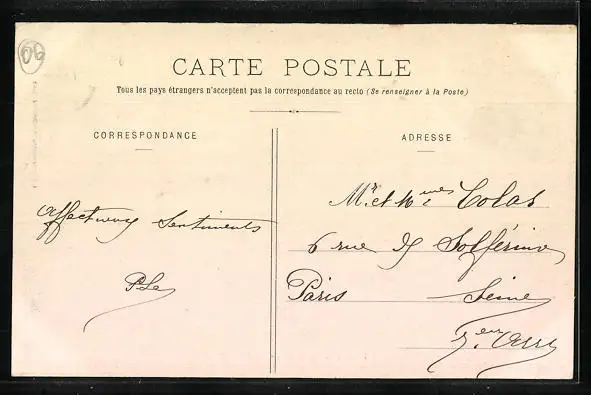 06
CARTE POSTALE
Tous les pays étrangers n'acceptent pas la correspondance au recto (Se renseigner à la Poste)
CORRESPONDANCE
ADRESSE
Affectueux Sentiments
Mr. et Mmes Colas
6 rue de Solférino
Paris Seine